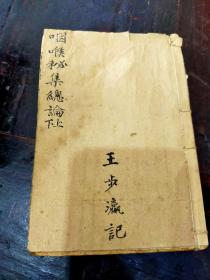 咽喉必
咽喉秘集總論上下
王步瀛記